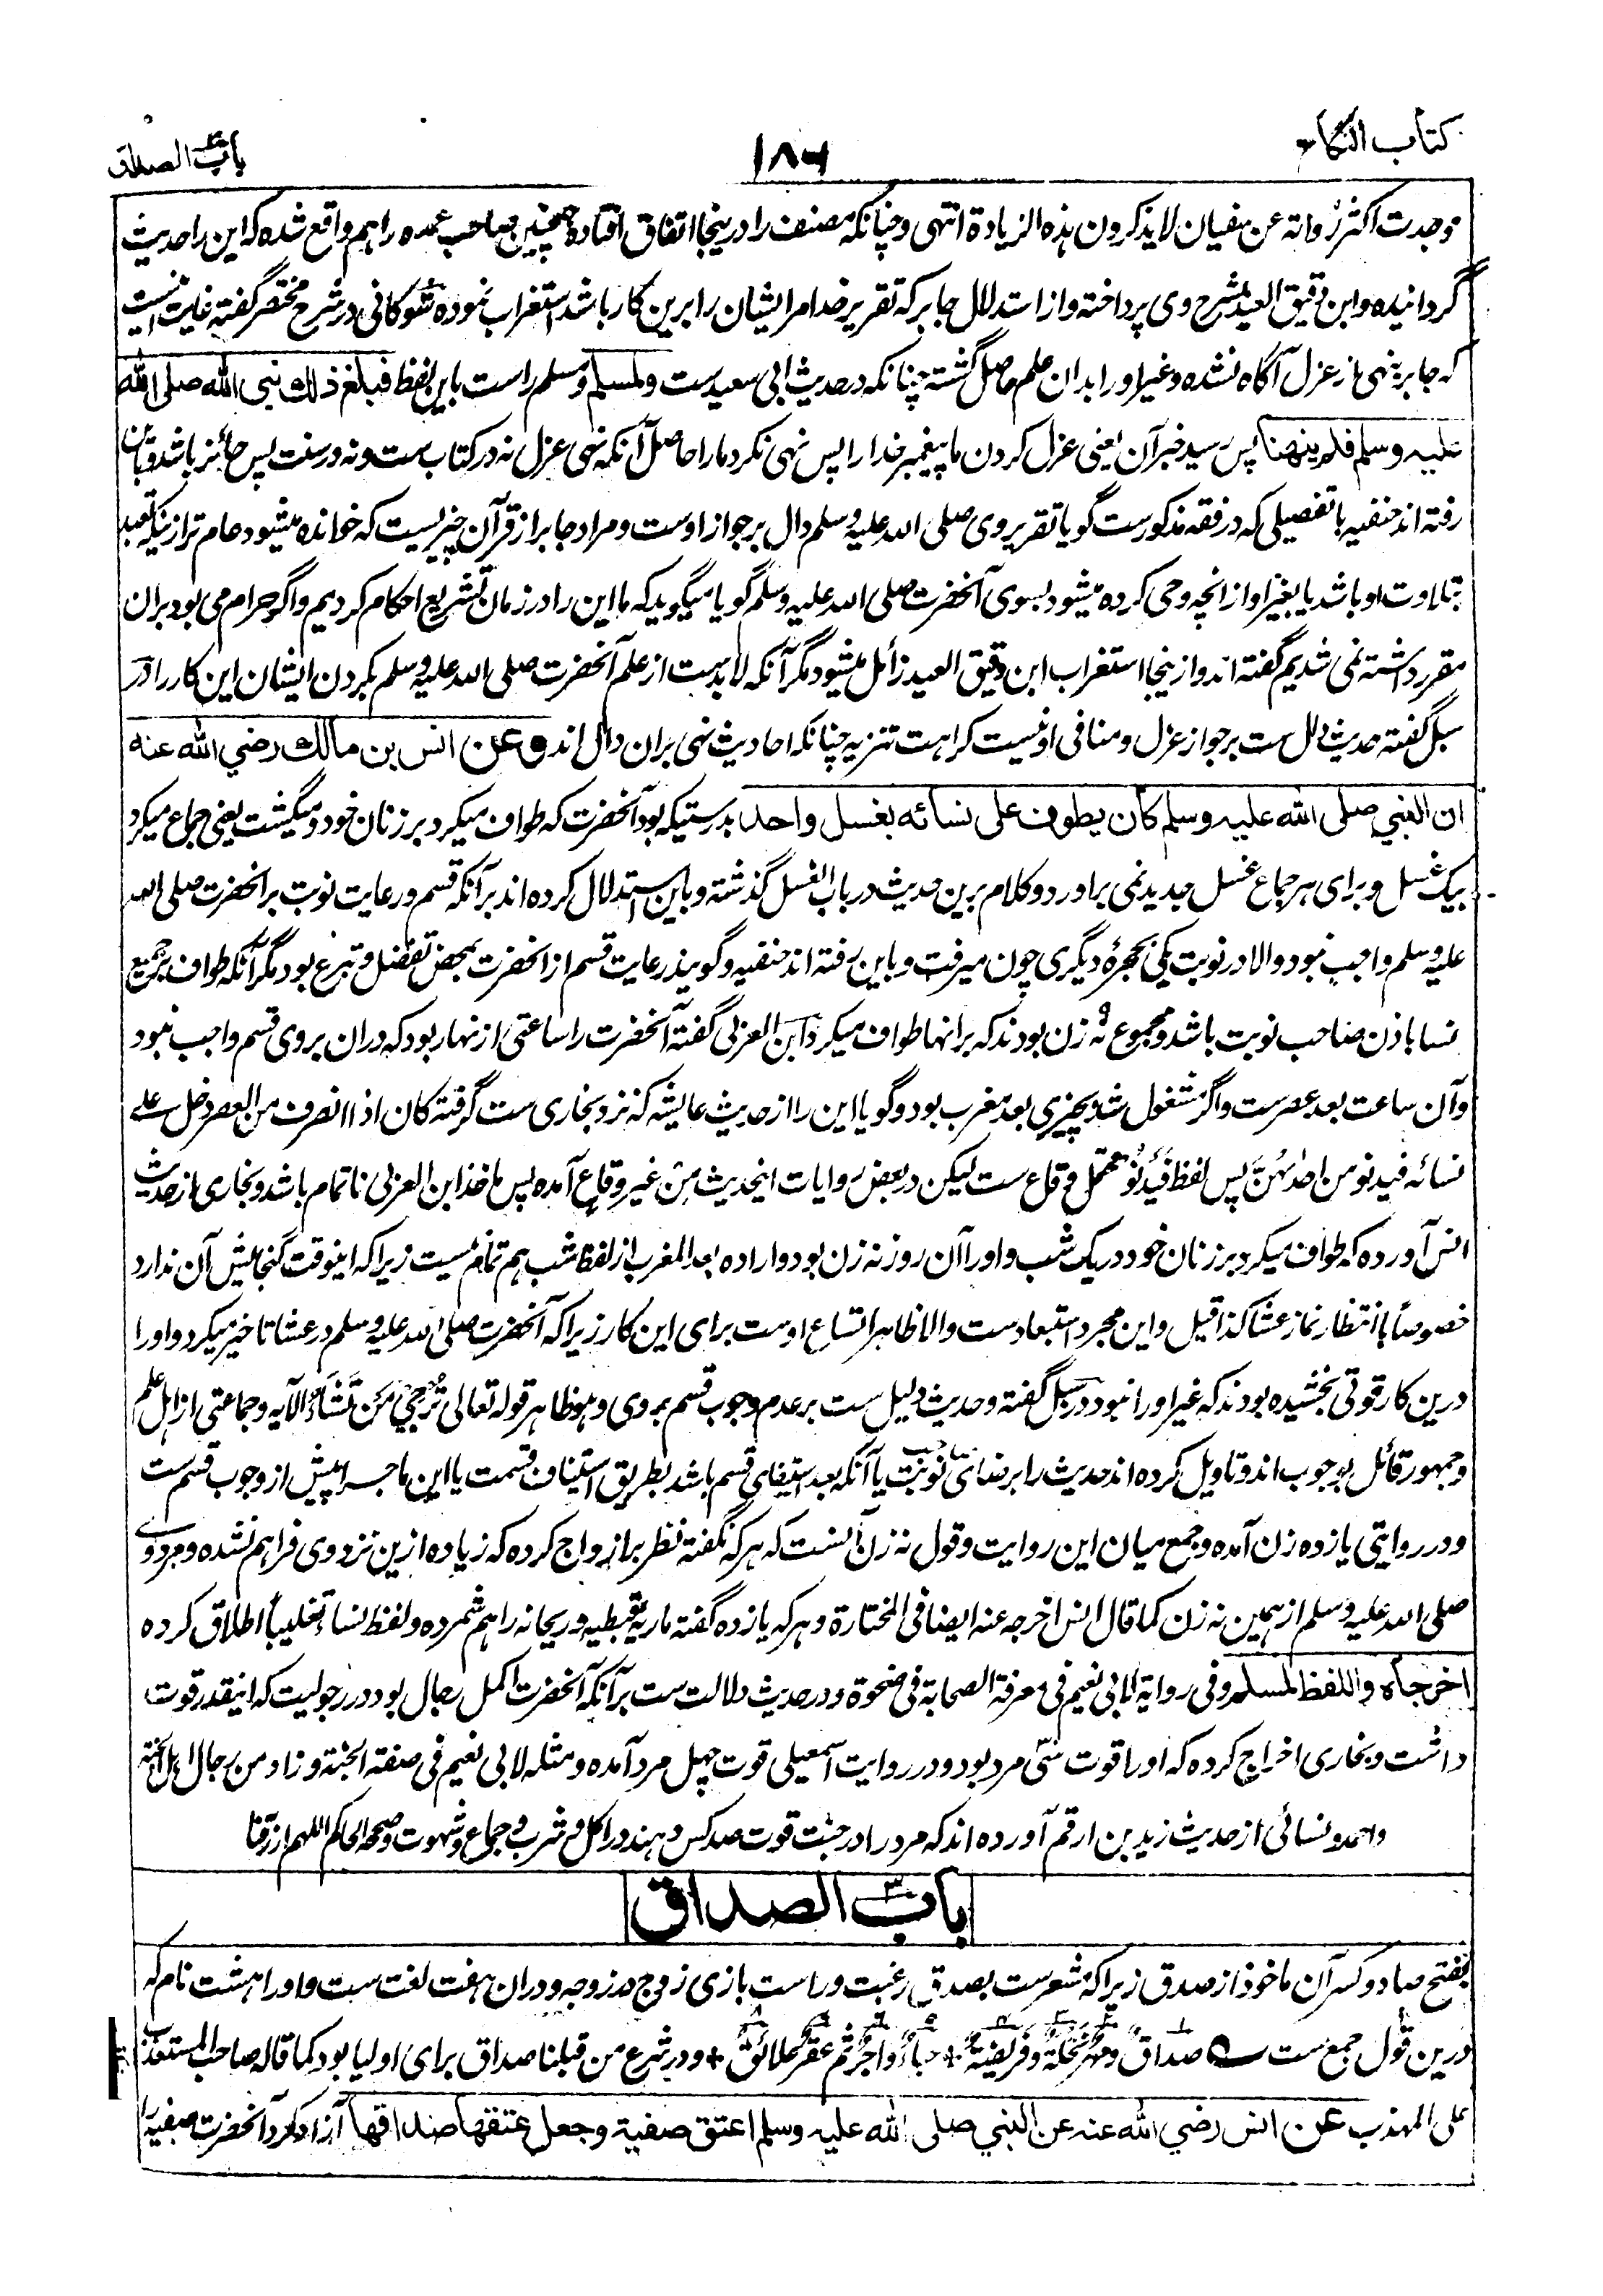 کتاب النکاح
۱۸۶
باب الصداق
فوجدت اکثر رواته عن سفیان لا یذکرون هذه الزیادة انتهی و چنانکه مصنف را درینجا اتفاق افتاده همچنین صاحب عمده را هم واقع شده که این را حدیث
گردانیده و ابن دقیق العید بشرح وی پرداخته و از استدلال جابر که تقریر خدا مر ایشان را برین کار باشد استغراب نموده شوکانی در شرح مختصر گفته غایت آنست
که جابر بنهی از عزل آگاه نشده و غیر او را بدان علم حاصل گشته چنانکه در حدیث ابی سعیدست ولمسلم و مسلم راست باین لفظ فبلغ ذلك نبی الله صلی الله
علیه وسلم فلم ینهنا پس رسید خبر آن یعنی عزل کردن ما پیغمبر خدا را پس نهی نکرد ما را حاصل آنکه نهی عزل نه در کتاب ست و نه در سنت پس جائز باشد و باین
رفته اند حنفیه با تفصیلی که در فقه مذکورست گویا تقریر وی صلی الله علیه وسلم دال بر جواز اوست و مراد جابر از قرآن چیزیست که خوانده میشود عام تر از نیکه تعبد
بتلاوت او باشد یا بغیر او از انچه وحی کرده میشود بسوی آنحضرت صلی الله علیه وسلم گویا میگوید که ما این را در زمان تشریع احکام کردیم و اگر حرام می بود بران
مقرر داشته نمی شدیم گفته اند و ازینجا استغراب ابن دقیق العید زائل میشود مگر آنکه لا بدست از علم آنحضرت صلی الله علیه وسلم بکردن ایشان این کار را در
سبل گفته حدیث دال ست بر جواز عزل و منافی او نیست کراهت تنزیه چنانکه احادیث نهی بران دال اند و عن انس بن مالك رضي الله عنه
ان النبي صلی الله علیه وسلم کان یطوف علی نسائه بغسل واحد بدرستیکه بود آنحضرت که طواف میکرد بر زنان خود و میگشت یعنی جماع میکرد
بیک غسل و برای هر جماع غسل جدید نمی براورد و کلام برین حدیث در باب الغسل گذشته و باین استدلال کرده اند بر آنکه قسم و رعایت نوبت بر انحضرت صلی الله
علیه وسلم واجب نبود والا در نوبت یکی بحجرهٔ دیگری چون میرفت و باین رفته اند حنفیه و گویند رعایت قسم از انحضرت بمحض تفضل و تبرع بود مگر آنکه طواف بر جمیع
نسا باذن صاحب نوبت باشد و مجموع نه زن بودند که بر انها طواف میکرد ابن العربی گفته آنحضرت را ساعتی از نهار بود که دران بروی قسم واجب نبود
و آن ساعت بعد عصرست و اگر مشغول شد بچیزی بعد مغرب بود و گویا این را از حدیث عایشه که نزد بخاری ست گرفته کان اذا انصرف من العصر دخل علی
نسائه فیدنو من احداهن پس لفظ فیدنو محتمل وقاع ست لیکن در بعض روایات اینحدیث من غیر وقاع آمده پس ماخذ ابن العربی ناتمام باشد و بخاری از حدیث
انس آورده که طواف میکرد بر زنان خود در یک شب و او را آن روز نه زن بود و اراده بعد المغرب از لفظ شب هم تمام نیست زیرا که اینوقت گنجایش آن ندارد
خصوصاً با انتظار نماز عشا کذا قیل و این مجرد استبعادست والا ظاهر اتساع اوست برای این کار زیرا که آنحضرت صلی الله علیه وسلم در عشا تاخیر میکرد و او را
درین کار قوتی بخشیده بودند که غیر او را نبود در سبل گفته و حدیث دلیل ست بر عدم وجوب قسم بروی و هو ظاهر قوله تعالی تُرْجِي مَن تَشَاءُ الآیه و جماعتی از اهل علم
و جمهور قائل بوجوب اند و تاویل کرده اند حدیث را برضای صاحب نوبت یا آنکه بعد استیفای قسم باشد بطریق استیناف قسمت یا این ماجرا پیش از وجوب قسم ست
و در روایتی یازده زن آمده و جمع میان این روایت و قول نه زن آنست که هر که نه گفته نظر بر ازواج کرده که زیاده ازین نزد وی فراهم نشده و مرد وی
صلی الله علیه وسلم از همین نه زن کما قال انس اخرجه عنه ایضا فی المختارة و هر که یازده گفته ماریه قبطیه و ریحانه را هم شمرده و لفظ نساء تغلیباً اطلاق کرده
اخرجاه واللفظ لمسلم و فی روایة لابی نعیم فی معرفة الصحابة فی ضحوة و در حدیث دلالت ست بر آنکه آنحضرت اکمل رجال بود در رجولیت که اینقدر قوت
داشت و بخاری اخراج کرده که او را قوت سی مرد بود و در روایت اسمعیلی قوت چهل مرد آمده و مثله لابی نعیم فی صفة الجنة و زاد من رجال اهل الجنة
و احمد و نسائی از حدیث زید بن ارقم آورده اند که مرد را در جنت قوت صد کس دهند در اکل و شرب و جماع و شهوت و صححه الحاکم اللهم ارزقنا
باب الصداق
بفتح صاد و کسر آن ماخوذ از صدق زیرا که مشعرست بصدق رغبت و راست بازی زوج در زوجه و دران هفت لغت ست و او را هشت نام که
درین قول جمع ست صداق ومهر نحلة وفریضة * حباء واجر ثم عقر علائق * و در شرع من قبلنا صداق برای اولیا بود کما قاله صاحب المستعذب
علی المهذب عن انس رضي الله عنه عن النبي صلی الله علیه وسلم اعتق صفیة وجعل عتقها صداقها آزاد کرد آنحضرت صفیه را